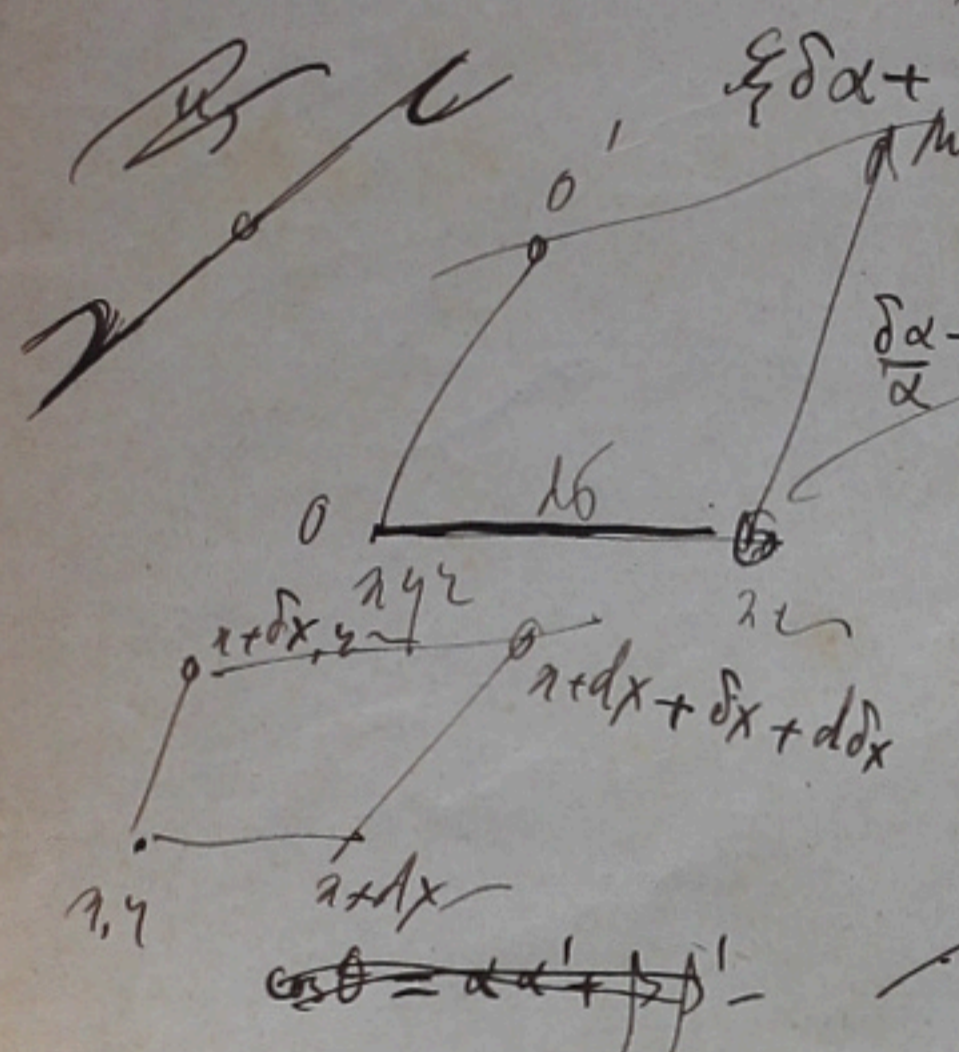 ξ δα +
O'
M
δα -
α
O
x y z
x + δx, y
x + dx + δx + dδx
x, y
x + dx
cos θ = αα' + ββ' -